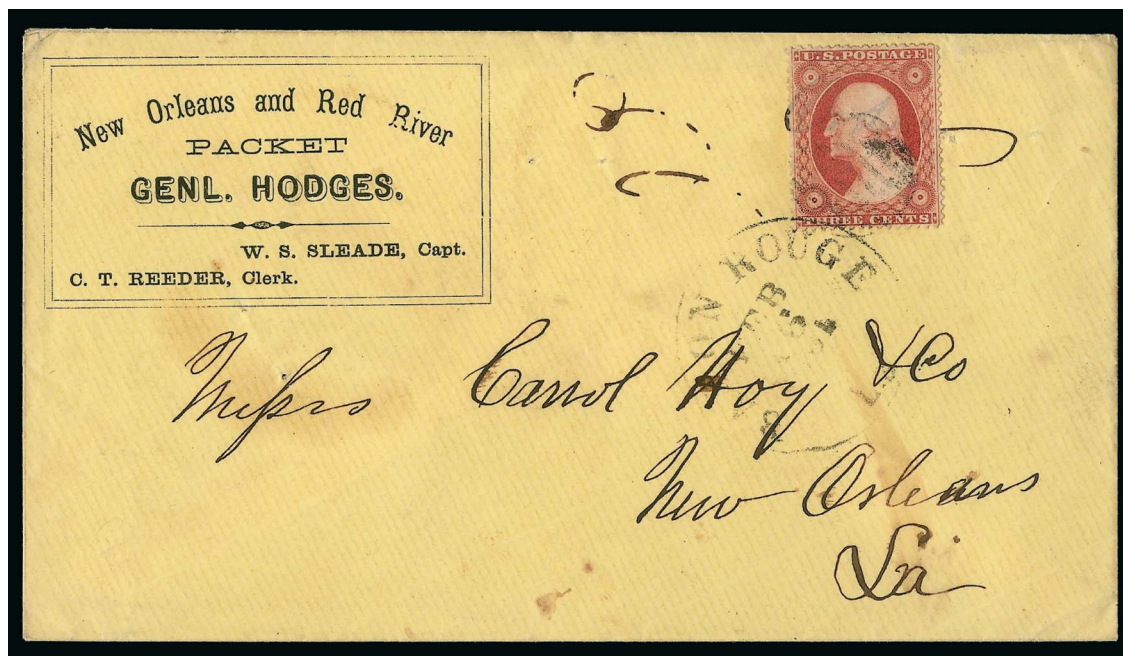 New Orleans and Red River
PACKET
GENL. HODGES.
W. S. SLEADE, Capt.
C. T. REEDER, Clerk.
U.S. POSTAGE
THREE CENTS
ON ROUGE
FEB
6
Messrs Carrol Hoy & Co
New Orleans
La